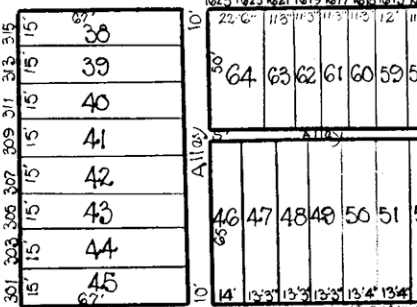 67' 10'
315 15' 38
313 15' 39
311 15' 40
309 15' 41
307 15' 42
305 15' 43
303 15' 44
301 15' 45
67' 10'
Alley
22'6" 11'3" 11'3" 11'3" 11'3" 12'
50' 64 63 62 61 60 59
5' Alley
65' 46 47 48 49 50 51
14' 13'3" 13'3" 13'3" 13'4" 13'4"